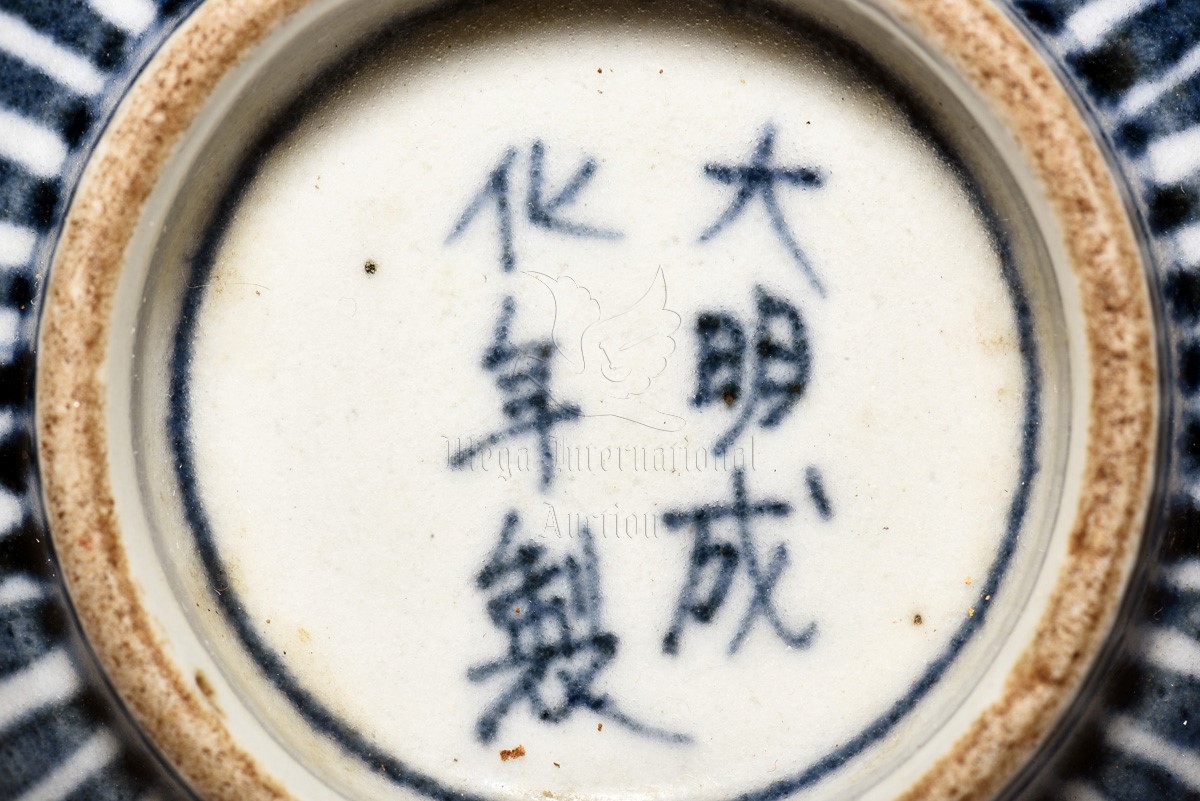 大明成
化年製
Mega International
Auction